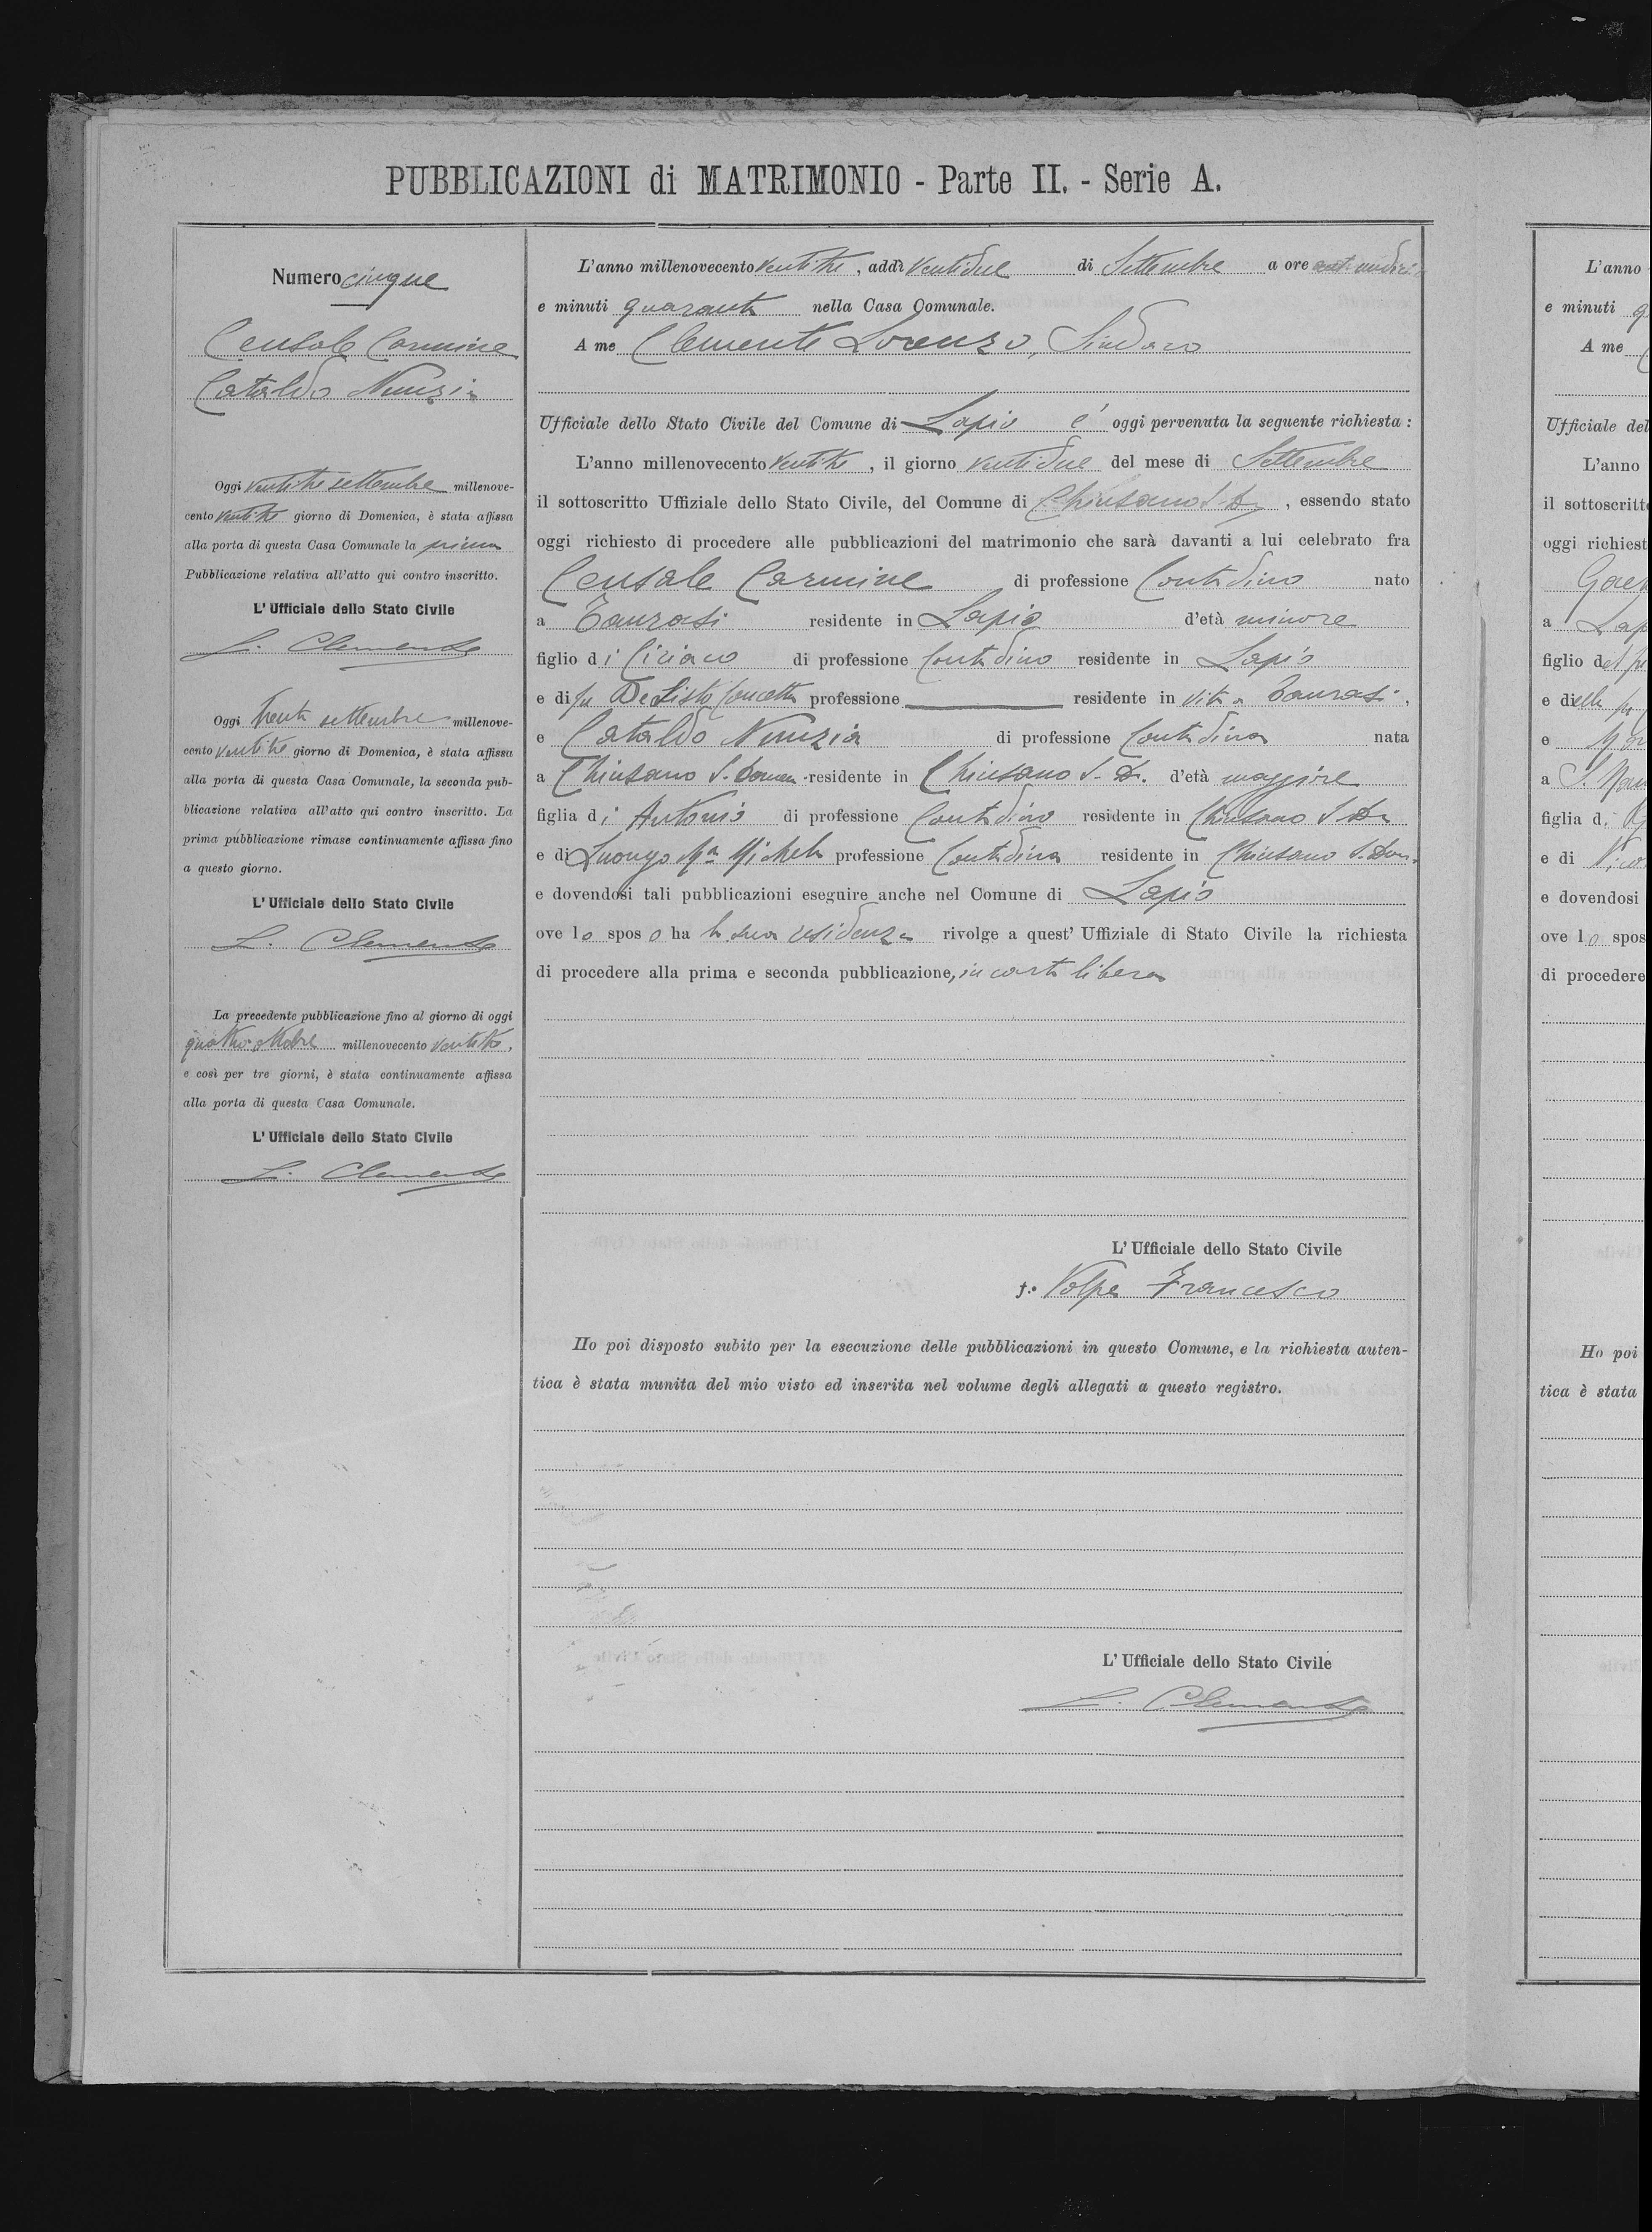 PUBBLICAZIONI di MATRIMONIO - Parte II. - Serie A.
Numero cinque
Censale Carmine
Cataldo Nunzia
Oggi ventitre settembre millenove-
cento ventitre giorno di Domenica, è stata affissa
alla porta di questa Casa Comunale la prima
Pubblicazione relativa all'atto qui contro inscritto.
L'Ufficiale dello Stato Civile
L. Clemente
Oggi trenta settembre millenove-
cento ventitre giorno di Domenica, è stata affissa
alla porta di questa Casa Comunale, la seconda pub-
blicazione relativa all'atto qui contro inscritto. La
prima pubblicazione rimase continuamente affissa fino
a questo giorno.
L'Ufficiale dello Stato Civile
L. Clemente
La precedente pubblicazione fino al giorno di oggi
quattro ottobre millenovecento ventitre,
e così per tre giorni, è stata continuamente affissa
alla porta di questa Casa Comunale.
L'Ufficiale dello Stato Civile
L. Clemente
L'anno millenovecento ventitre, addì ventidue di Settembre a ore
e minuti quaranta nella Casa Comunale.
A me Clemente Lorenzo, Sindaco
Ufficiale dello Stato Civile del Comune di Lapio é oggi pervenuta la seguente richiesta:
L'anno millenovecento ventitre, il giorno ventidue del mese di Settembre
il sottoscritto Uffiziale dello Stato Civile, del Comune di Chiusano S. D., essendo stato
oggi richiesto di procedere alle pubblicazioni del matrimonio che sarà davanti a lui celebrato fra
Censale Carmine di professione Contadino nato
a Taurasi residente in Lapio d'età minore
figlio di Ciriaco di professione Contadino residente in Lapio
e di fu De Listo Concetta professione residente in vita a Taurasi,
e Cataldo Nunzia di professione Contadina nata
a Chiusano S. Domen. residente in Chiusano S. D. d'età maggiore
figlia di Antonio di professione Contadino residente in Chiusano S. Do
e di Luongo Ma Michela professione Contadina residente in Chiusano S. Dom.
e dovendosi tali pubblicazioni eseguire anche nel Comune di Lapio
ove lo sposo ha la sua residenza rivolge a quest' Uffiziale di Stato Civile la richiesta
di procedere alla prima e seconda pubblicazione, in carta libera
L'Ufficiale dello Stato Civile
f.o Volpe Francesco
Ho poi disposto subito per la esecuzione delle pubblicazioni in questo Comune, e la richiesta auten-
tica è stata munita del mio visto ed inserita nel volume degli allegati a questo registro.
L'Ufficiale dello Stato Civile
L. Clemente
L'anno
e minuti
A me
Ufficiale del
L'anno
il sottoscritt
oggi richiest
a Lap
figlio del
e della
e
a S.
figlia d
e di
e dovendosi
ove lo spos
di procedere
Ho poi
tica è stata